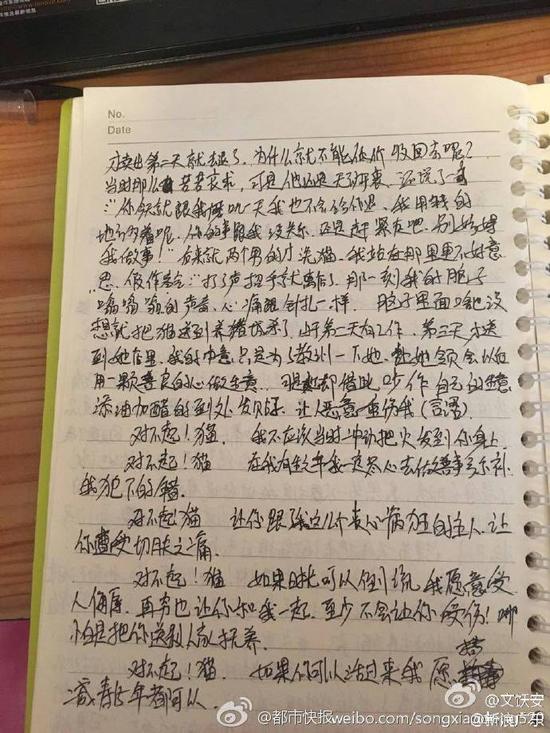 No.
Date
才卖出第二天就去退了，为什么就不能低价收回去呢？
当时那么苦苦哀求，可是他还是无动于衷，还说了一句
"你今天就跟我
地方用着呢，你的事跟我没关 还是赶紧走吧，别妨碍
我做事！"后来就两个男的才洗猫，我站在那里不好意
思 打了声招呼就离开了 那一刻我的脑子
嗡嗡嗡的声音，心痛跟针扎一样 脑子里面
想就把猫送到养猪场杀了，由于第二天有工作，第三天才送
到她店里，我的本意只是为了教训一下她，让她领会以后
用一颗善良的心做生意，可是她却借此炒作自己的生意
添油加醋的到处发贴 让人恶意重伤我（言语）
对不起！猫 我不应该当时冲动把火发到你身上
对不起！猫 在我有生之年我一定尽心去做善事弥补
我犯下的错
对不起猫 让你跟了我这个丧心病狂的主人 让
你遭受切肤之痛
对不起！猫 如果时光可以倒流 我愿意受
人侮辱 再穷也让你和我一起 至少不会让你受伤！哪
怕是把你送别人家抚养
对不起！猫 如果你可以活过来我愿
减青少年都可以
@文饫安
@都市快报weibo.com/songxia
@新浪广东